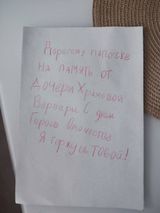 Дорогому папочке
на память от
Дочери Храмовой
Варвары в день
Героев Отечества
Я горжусь Тобой!